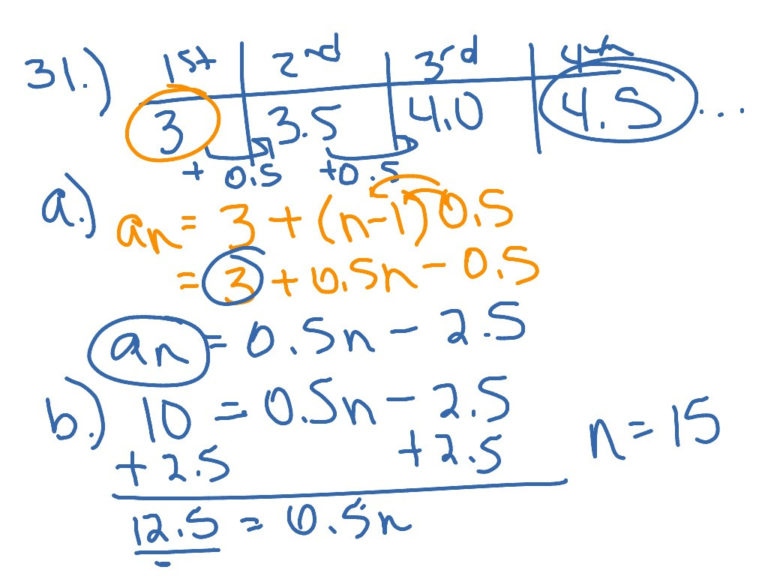 31.) 1st 2nd 3rd 4th
3 3.5 4.0 4.5 ...
+ 0.5 +0.5
a.) an = 3 + (n-1) 0.5
= 3 + 0.5n - 0.5
an = 0.5n - 2.5
b.) 10 = 0.5n - 2.5 n = 15
+ 2.5 +2.5
12.5 = 0.5n